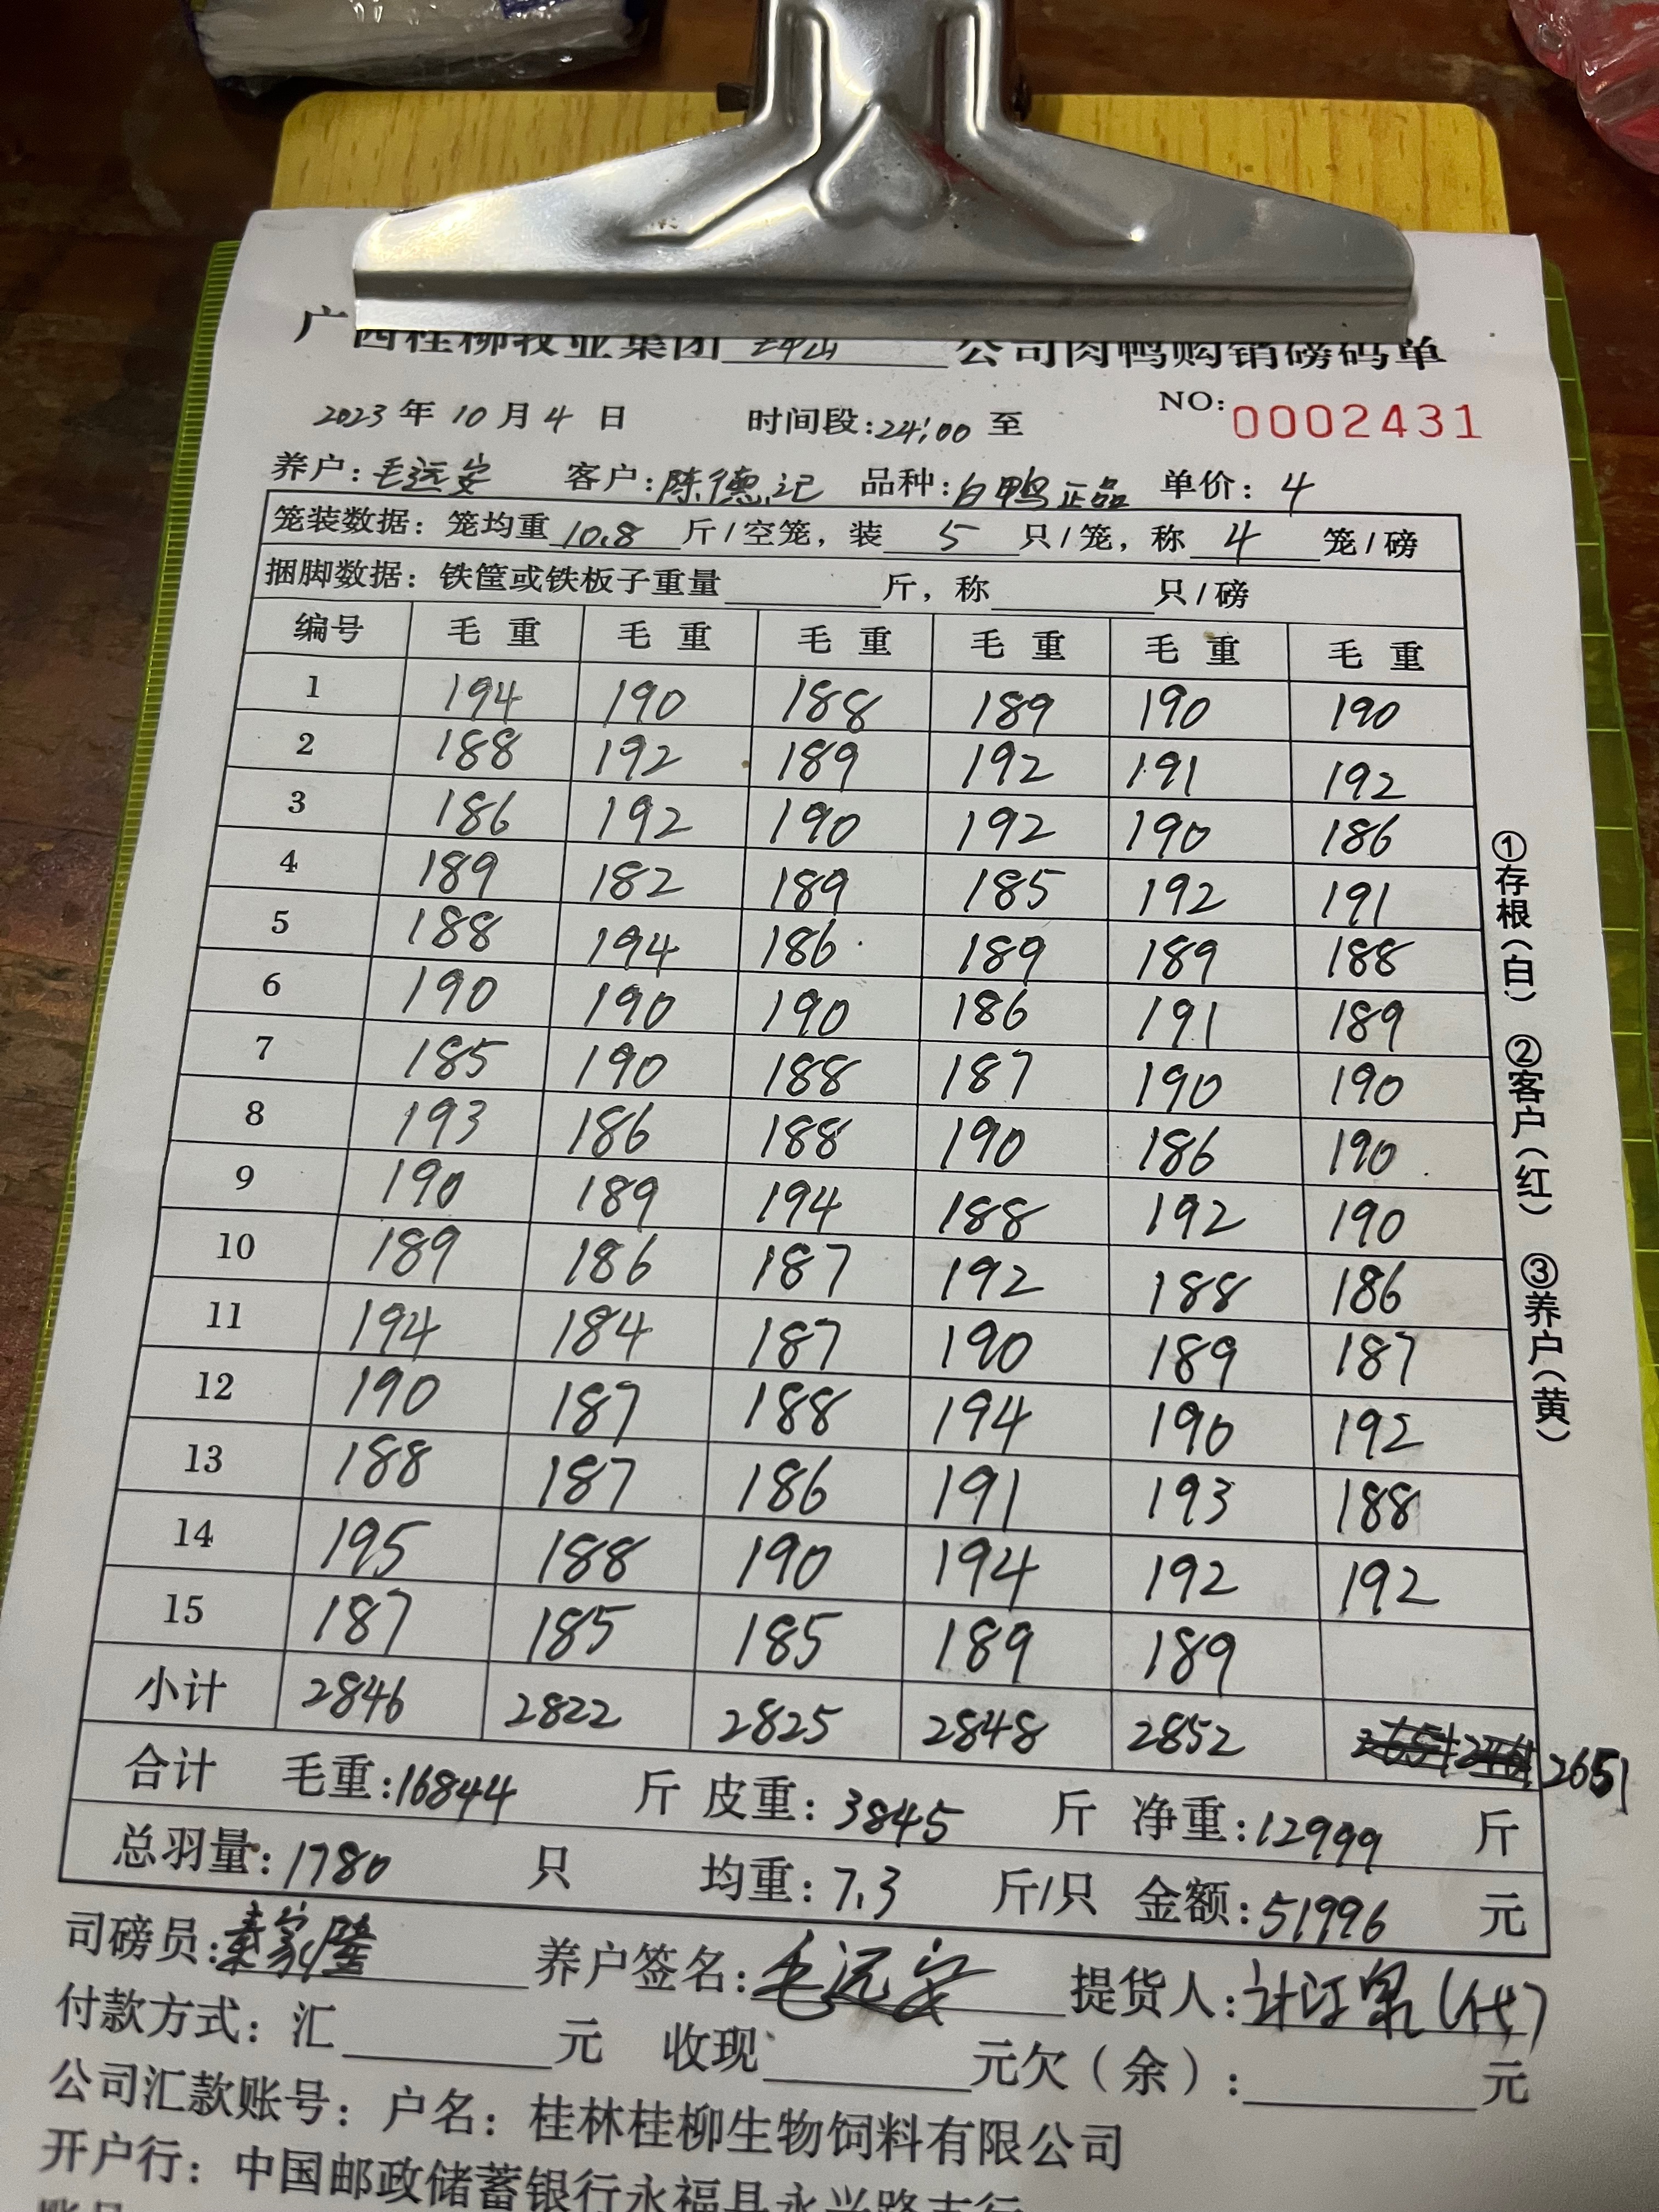 广西桂柳牧业集团 钟山 公司肉鸭购销磅码单
2023年10月4日 时间段:24:00至 NO:0002431
养户:毛远安 客户:陈德记 品种:白鸭正品 单价:4
笼装数据:笼均重10.8斤/空笼,装5只/笼,称4笼/磅
捆脚数据:铁筐或铁板子重量 斤,称 只/磅
编号 毛重 毛重 毛重 毛重 毛重 毛重
1 194 190 188 189 190 190
2 188 192 189 192 191 192
3 186 192 190 192 190 186
4 189 182 189 185 192 191
5 188 194 186 189 189 188
6 190 190 190 186 191 189
7 185 190 188 187 190 190
8 193 186 188 190 186 190
9 190 189 194 188 192 190
10 189 186 187 192 188 186
11 194 184 187 190 189 187
12 190 187 188 194 190 192
13 188 187 186 191 193 188
14 195 188 190 194 192 192
15 187 185 185 189 189
小计 2846 2822 2825 2848 2852 2651
合计 毛重:16844 斤 皮重:3845 斤 净重:12999 斤
总羽量:1780 只 均重:7.3 斤/只 金额:51996 元
司磅员:秦家隆 养户签名:毛远安 提货人: (代)
付款方式:汇 元 收现 元欠(余): 元
公司汇款账号:户名:桂林桂柳生物饲料有限公司
开户行:中国邮政储蓄银行永福县永兴路支行
账号
①存根(白) ②客户(红) ③养户(黄)